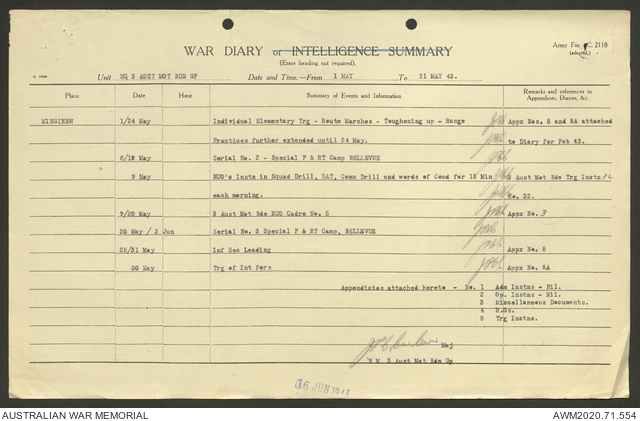 WAR DIARY or INTELLIGENCE SUMMARY
(Erase heading not required).
Army Form C. 2118
(adapted.)
Unit HQ 3 AUST MOT BDE GP Date and Time.—From 1 MAY To 31 MAY 43.
Place Date Hour Summary of Events and Information Remarks and references to Appendices, Diaries, &c.
MINGINEW 1/24 May Individual Elementary Trg - Route Marches - Toughening up - Range Appx Nos. 5 and 5A attached
Practices further extended until 24 May. to Diary for Feb 43.
6/18 May Serial No. 2 - Special P & RT Camp BELLEVUE
9 May NCO's Instn in Squad Drill, SAT, Comn Drill and words of Comd for 15 Min 3 Aust Mot Bde Trg Instn
each morning. No. 32.
9/20 May 3 Aust Mot Bde NCO Cadre No. 5 Appx No.
20 May / 2 Jun Serial No. 3 Special P & RT Camp, BELLEVUE
25/31 May Inf Sec Leading Appx No. 5
30 May Trg of Int Pers Appx No. 5A
Appendicies attached hereto - No. 1 Adm Instns - Nil.
2 Op. Instns - Nil.
3 Miscellaneous Documents.
4 R.Os.
5 Trg Instns.
Maj
B M 3 Aust Mot Bde Gp
16 JUN 1943
AUSTRALIAN WAR MEMORIAL AWM2020.71.554